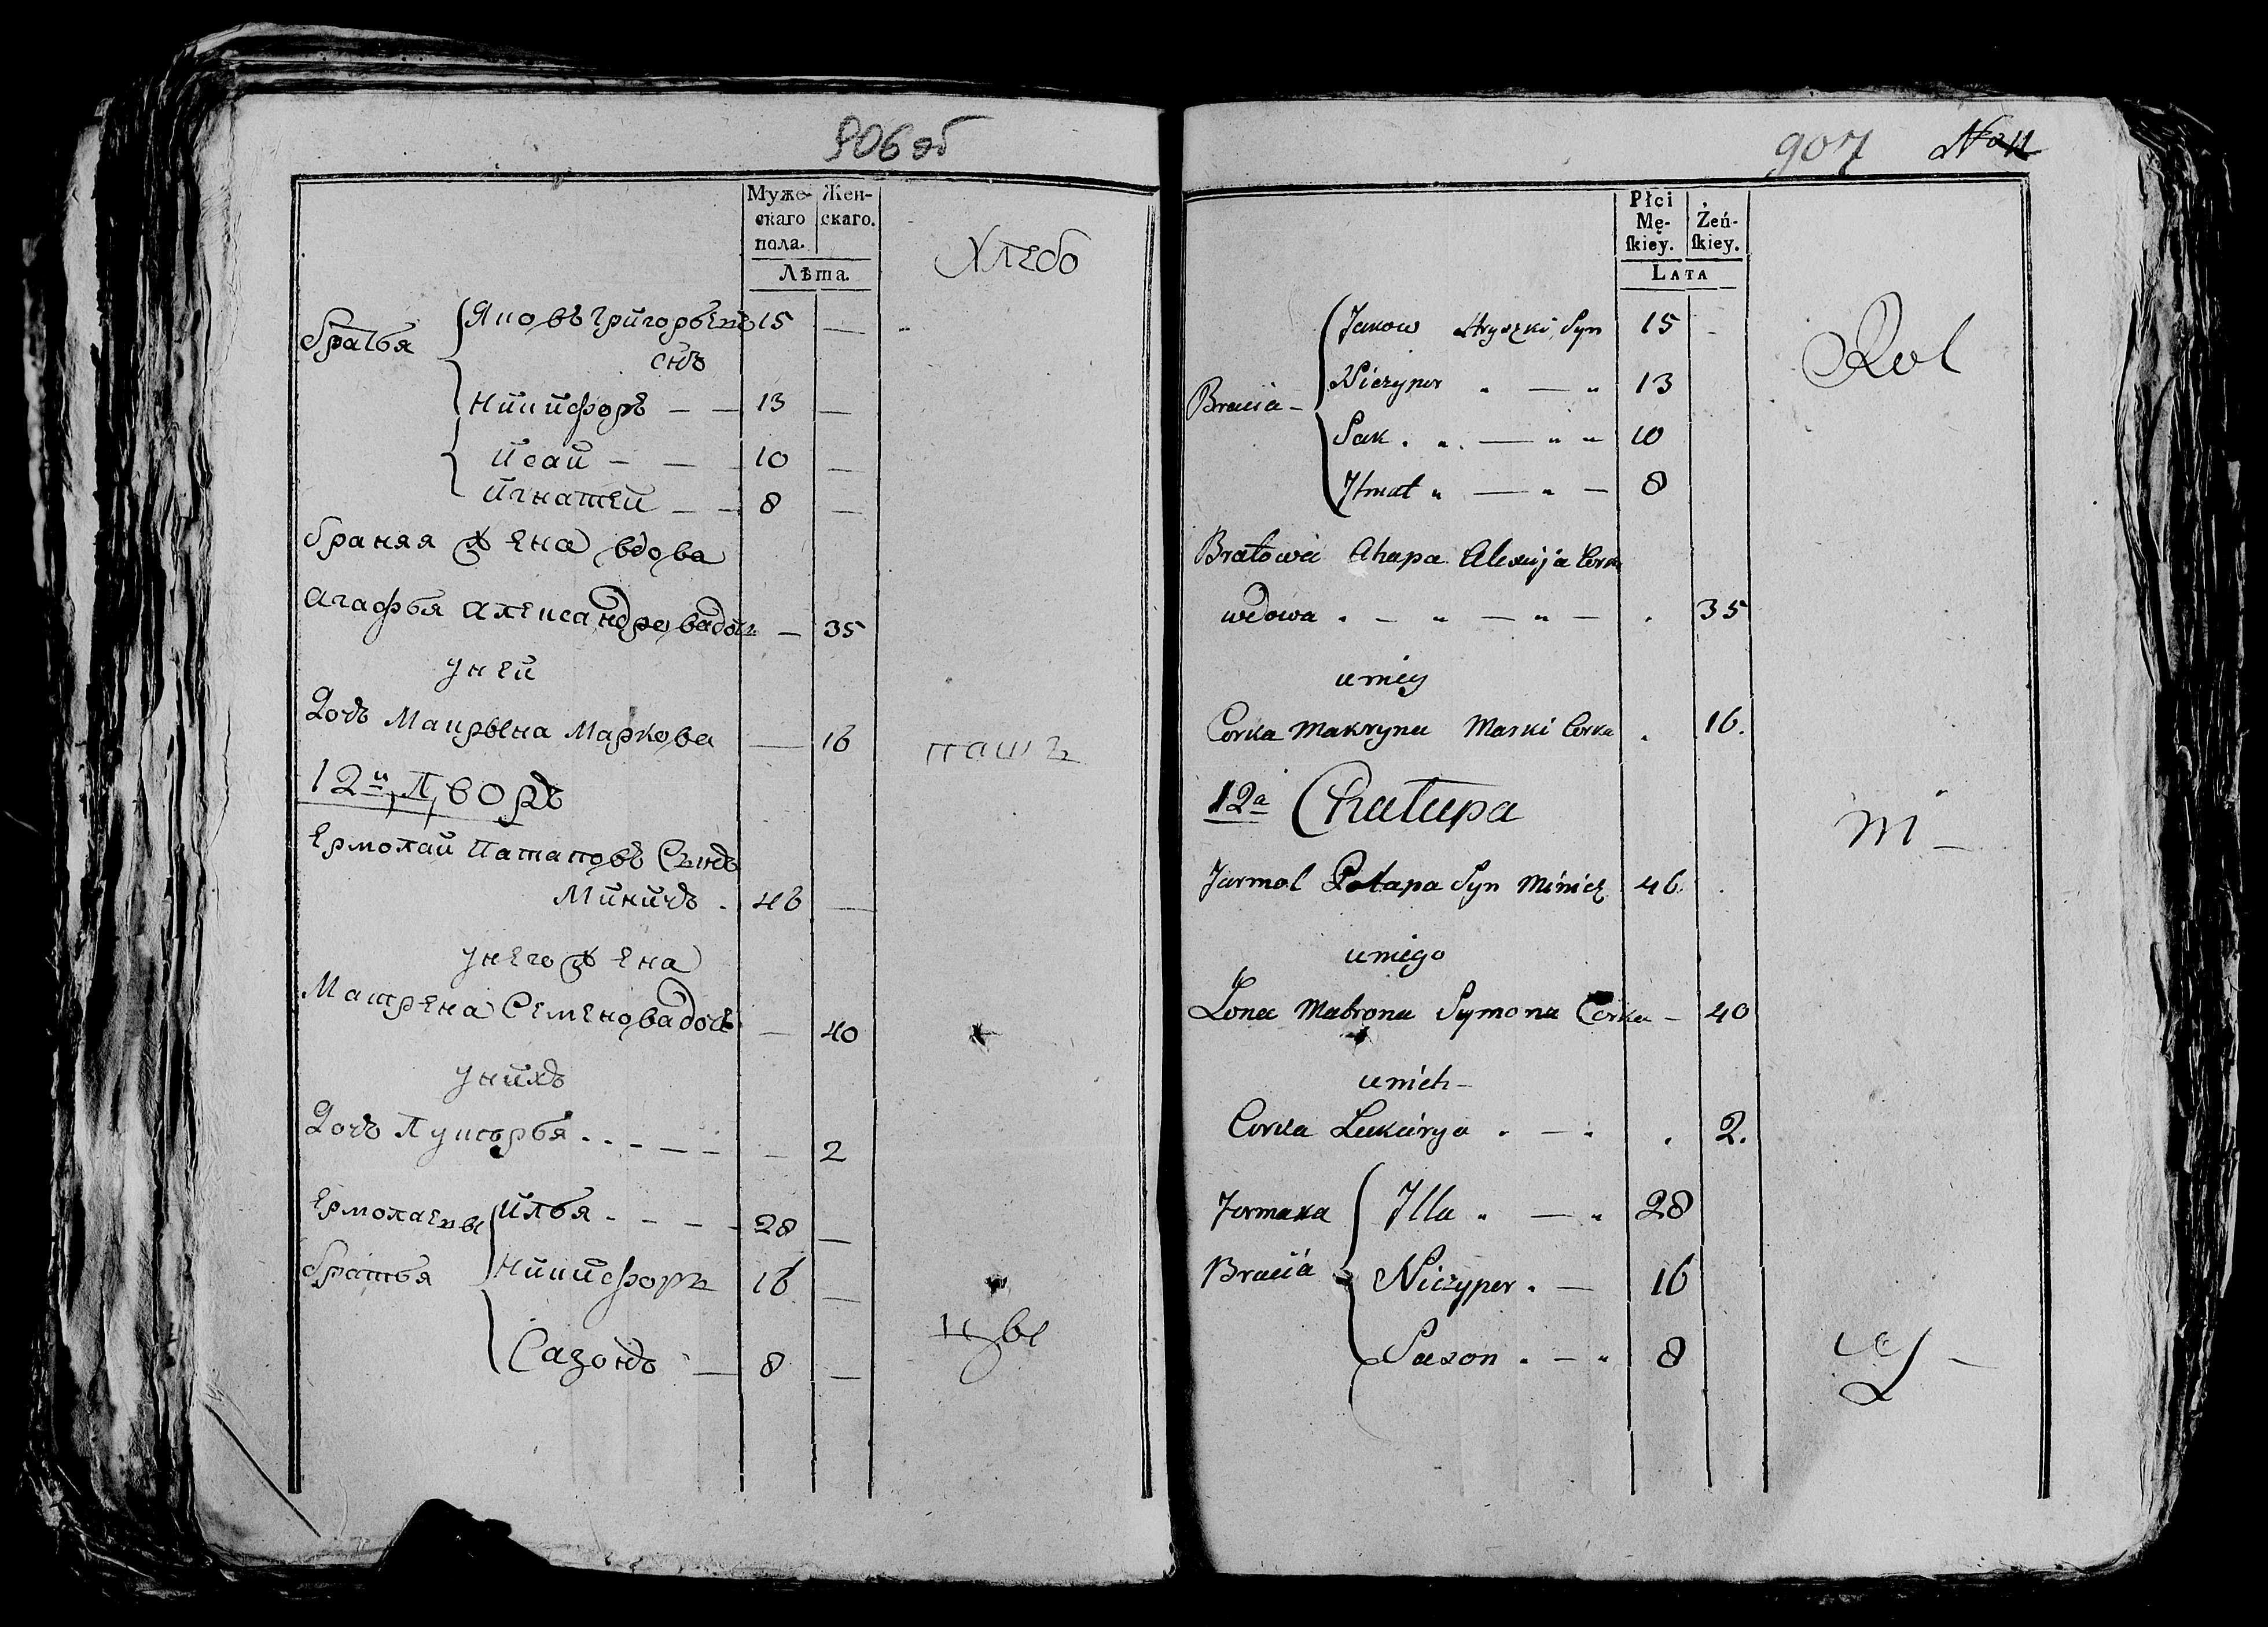 906 об
Муже- Жен-
скаго скаго.
пола.
Лѣта.
Хлебо
братья
Яковъ Григорьевъ 15 —
снъ
Никифоръ — — 13 —
Исай — — 10 —
Игнатей — — 8 —
братняя жена вдова
Агафья Александрова дочь — 35
у ней
Дочь Макрына Маркова — 16
пашъ
12й Дворъ
Ермолай Патаповъ Сынъ
Миничъ . 46 —
у него жена
Матрена Семенова дочь — 40
у нихъ
Дочь Лукерья . . — — — — 2
Ермолаевы
братья
Илья - - - - 28 —
Никифоръ 16 —
Сазонъ — 8 —
цы
907 No 11
Płci
Mę- Żeń-
ſkiey. ſkiey.
LATA
Rol
Bracia -
Jakow Hryszki Syn 15 -
Niczyper " — " 13
Sak . " . — " " 10
Ihnat " — " — 8
Bratowa Ahapa Alexija Corka
wdowa . — " — " — . 35
u niey
Corka Makryna Marki Corka . 16.
12a Chatupa
ni —
Jarmol Potapa Syn Minicz 46 .
u niego
Żona Matrona Symona Corka — 40
u nich —
Corka Lukirya . — . . 2.
Jermaka
Bracia
Illa " — " 28
Niczyper . — 16
Sazon . — " 8
cy —